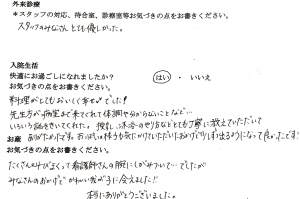 外来診療
*スタッフの対応、待合室、診察室等お気づきの点をお書きください。
スタッフのみなさん とても優しかった。
入院生活
快適にお過ごしになれましたか？ はい ・ いいえ
お気づきの点をお書きください。
料理がとてもおいしく幸せでした！
先生方が病室まで来てくれて体調やわからないことなど…
いろいろ話をきいてくれた。授乳、沐浴のやり方などとても丁寧に教えていただいて
お産
ありがたかったです。おっぱいの張りも気にかけていただいたおかげで、よく出るようになって良かったです！
お気づきの点をお書きください。
たくさんさけびまくって看護師さんの腕にしがみついて…でしたが
みなさんのおかげで かわいい我が子に会えました!!
本当にありがとうございました。